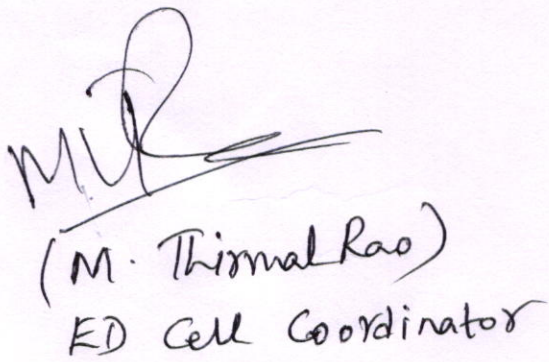 (M. Thirmal Rao)
ED Cell Coordinator